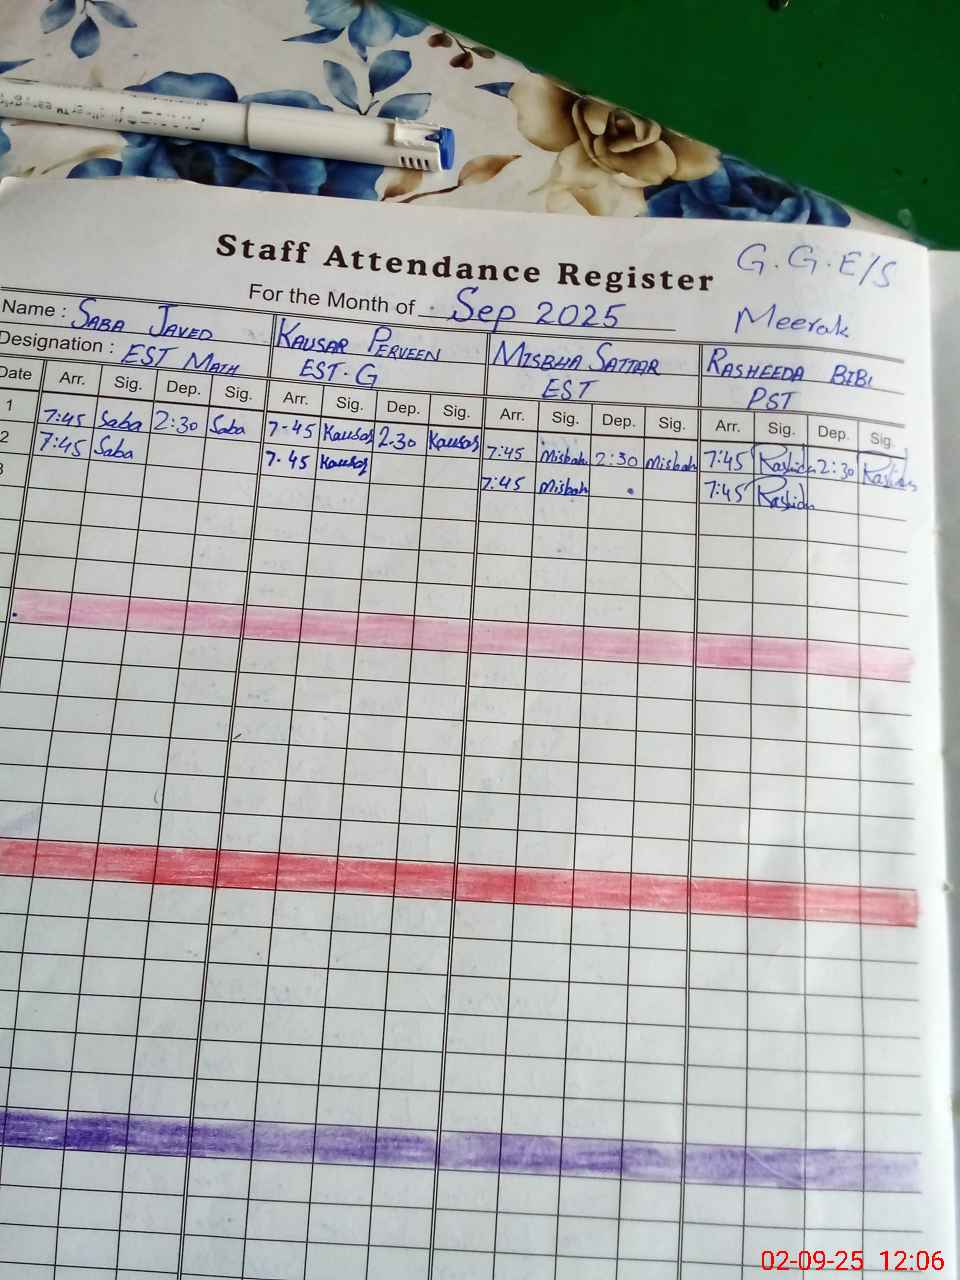 Staff Attendance Register
G.G.E/S
For the Month of Sep 2025
Meerak
Name : SABA JAVED KAUSAR PERVEEN MISBHA SATTAR RASHEEDA BIBI
Designation : EST MATH EST.G EST PST
Date Arr. Sig. Dep. Sig. Arr. Sig. Dep. Sig. Arr. Sig. Dep. Sig. Arr. Sig. Dep. Sig.
1 7:45 Saba 2:30 Saba 7-45 Kausar 2.30 Kausar 7:45 Misbah 2:30 Misbah 7:45 Rashida 2:30 Rashida
2 7:45 Saba 7.45 Kausar 7:45 Misbah 7:45 Rashida
3
02-09-25 12:06